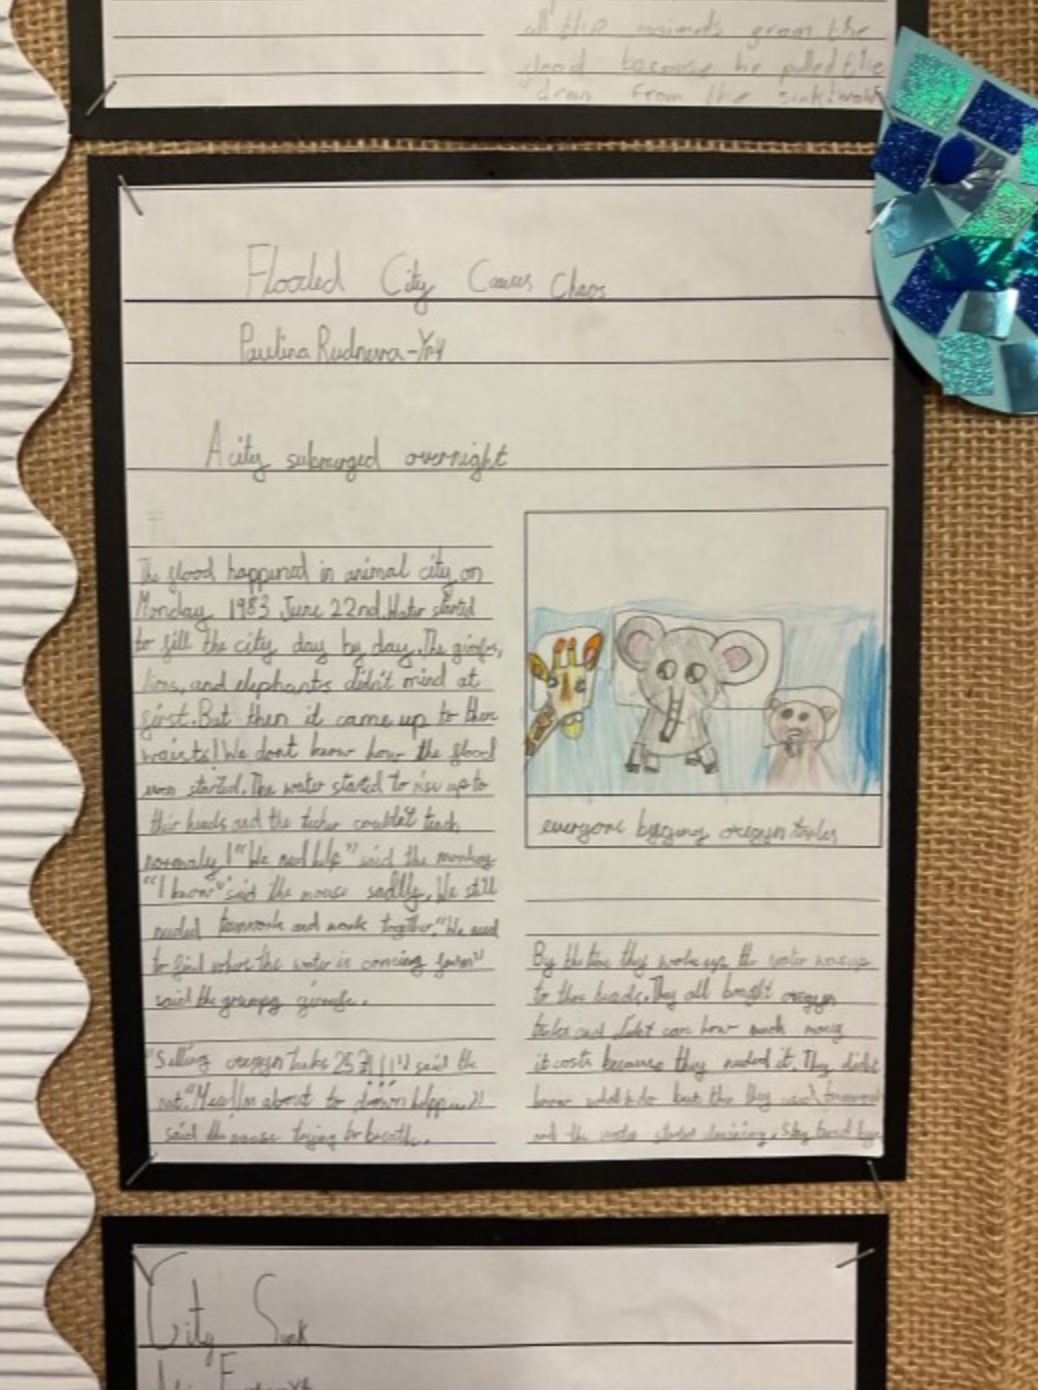 all the animals from the
flood because he pulled the
drean from the sink! wow
Flooded City Causes Chaos
Paulina Rudneva-Yr4
A city submerged overnight
The flood happened in animal city on
Monday 1983 June 22nd. Water started
to fill the city day by day. The girafes,
lions, and elephants didn't mind at
first. But then it came up to their
waists! We dont know how the flood
even started. The water started to rise up to
their heads and the teacher couldn't teach
normaly! "We need help" said the monkey
"I know" said the mouse sadlly. We still
needed teamwork and work together. "We need
to find where the water is coming from"
said the grumpy girrafe.
"Selling oregyn tanks 25 !!!" said the
rat. "Meee! Im about to drown
said the mouse trying to breath.
everyone bying oregyn tanks
By the time they woke up the water was up
to there heads. They all bought oregyn
tanks and didnt care how much mony
it costs because they needed it. They didnt
know what to do but the they used teamwork
and the water started draining. Stay tuned bye
City Sunk